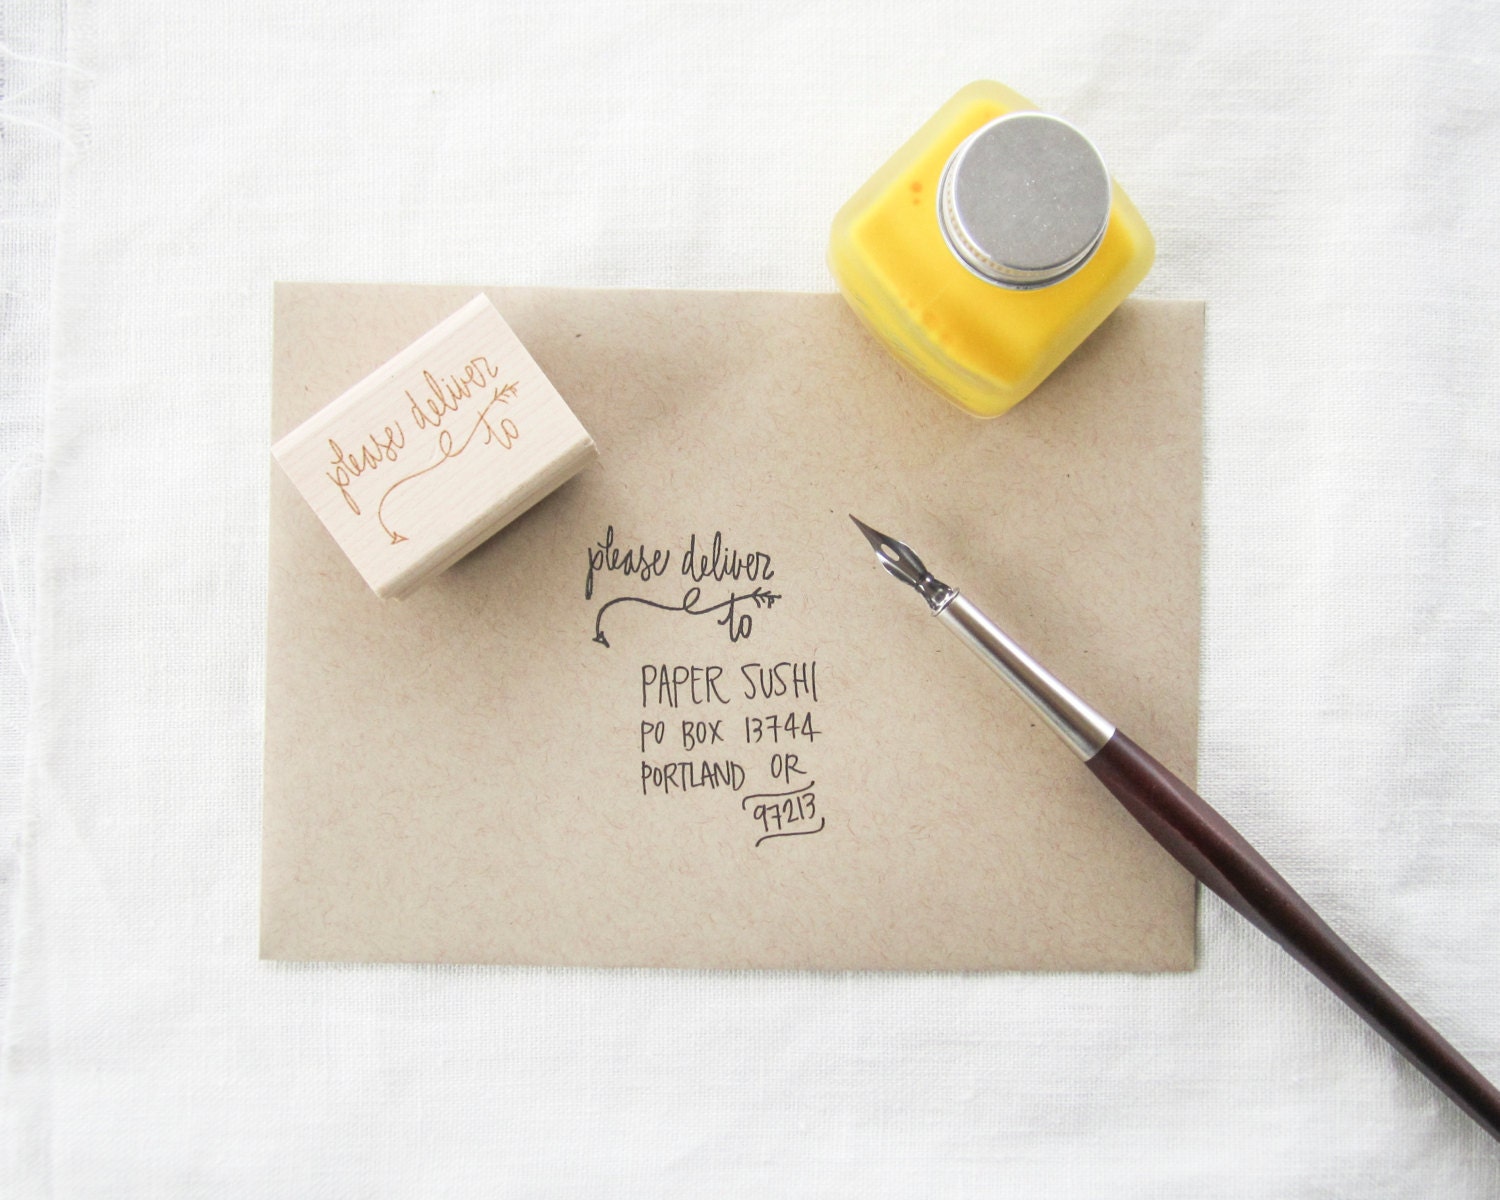 please deliver
to
please deliver
to
PAPER SUSHI
PO BOX 13744
PORTLAND OR
97213